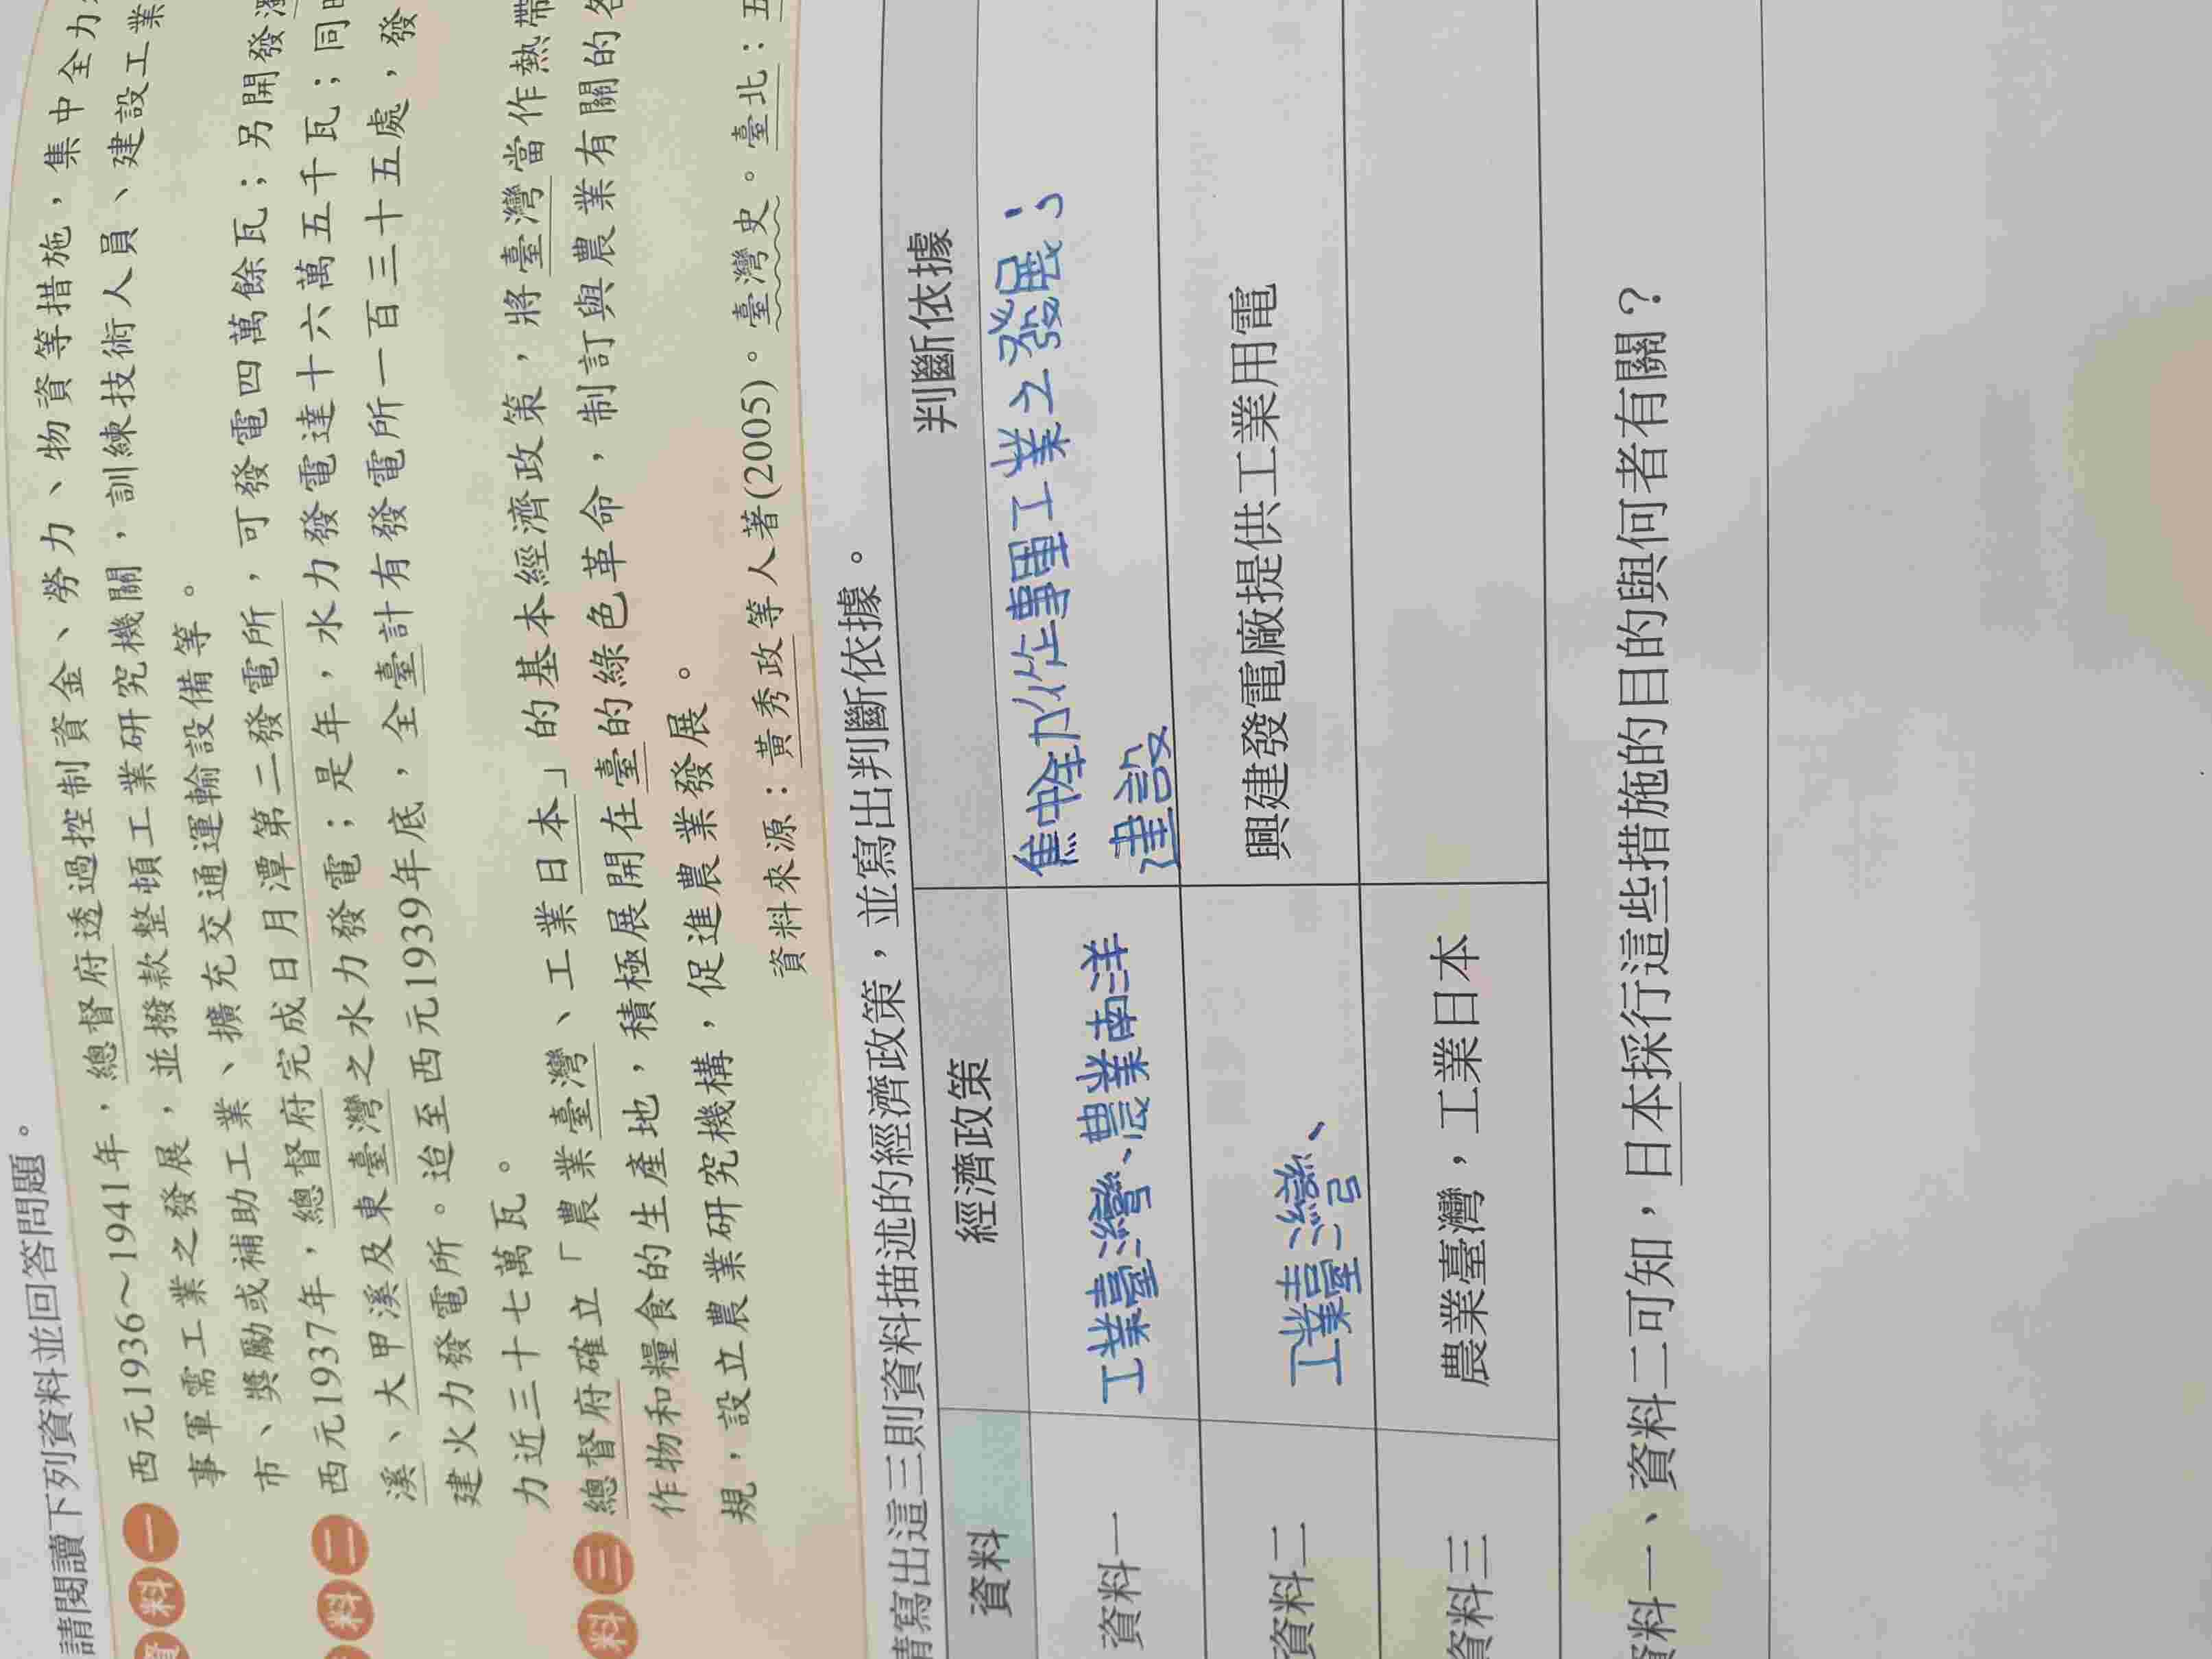 請閱讀下列資料並回答問題。
資料一 西元1936～1941年，總督府透過控制資金、勞力、物資等措施，集中全力
事軍需工業之發展，並撥款整頓工業研究機關，訓練技術人員、建設工業
市、獎勵或補助工業、擴充交通運輸設備等。
料二 西元1937年，總督府完成日月潭第二發電所，可發電四萬餘瓦；另開發濁
溪、大甲溪及東臺灣之水力發電；是年，水力發電達十六萬五千瓦；同時
建火力發電所。迨至西元1939年底，全臺計有發電所一百三十五處，發
力近三十七萬瓦。
料三 總督府確立「農業臺灣、工業日本」的基本經濟政策，將臺灣當作熱帶
作物和糧食的生產地，積極展開在臺的綠色革命，制訂與農業有關的各
規，設立農業研究機構，促進農業發展。
資料來源：黃秀政等人著(2005)。臺灣史。臺北：五
請寫出這三則資料描述的經濟政策，並寫出判斷依據。
資料 經濟政策 判斷依據
資料一 工業臺灣、農業南洋 集中全力作事軍工業之發展；
建設
資料二 工業臺灣、 興建發電廠提供工業用電
資料三 農業臺灣，工業日本
資料一、資料二可知，日本採行這些措施的目的與何者有關？